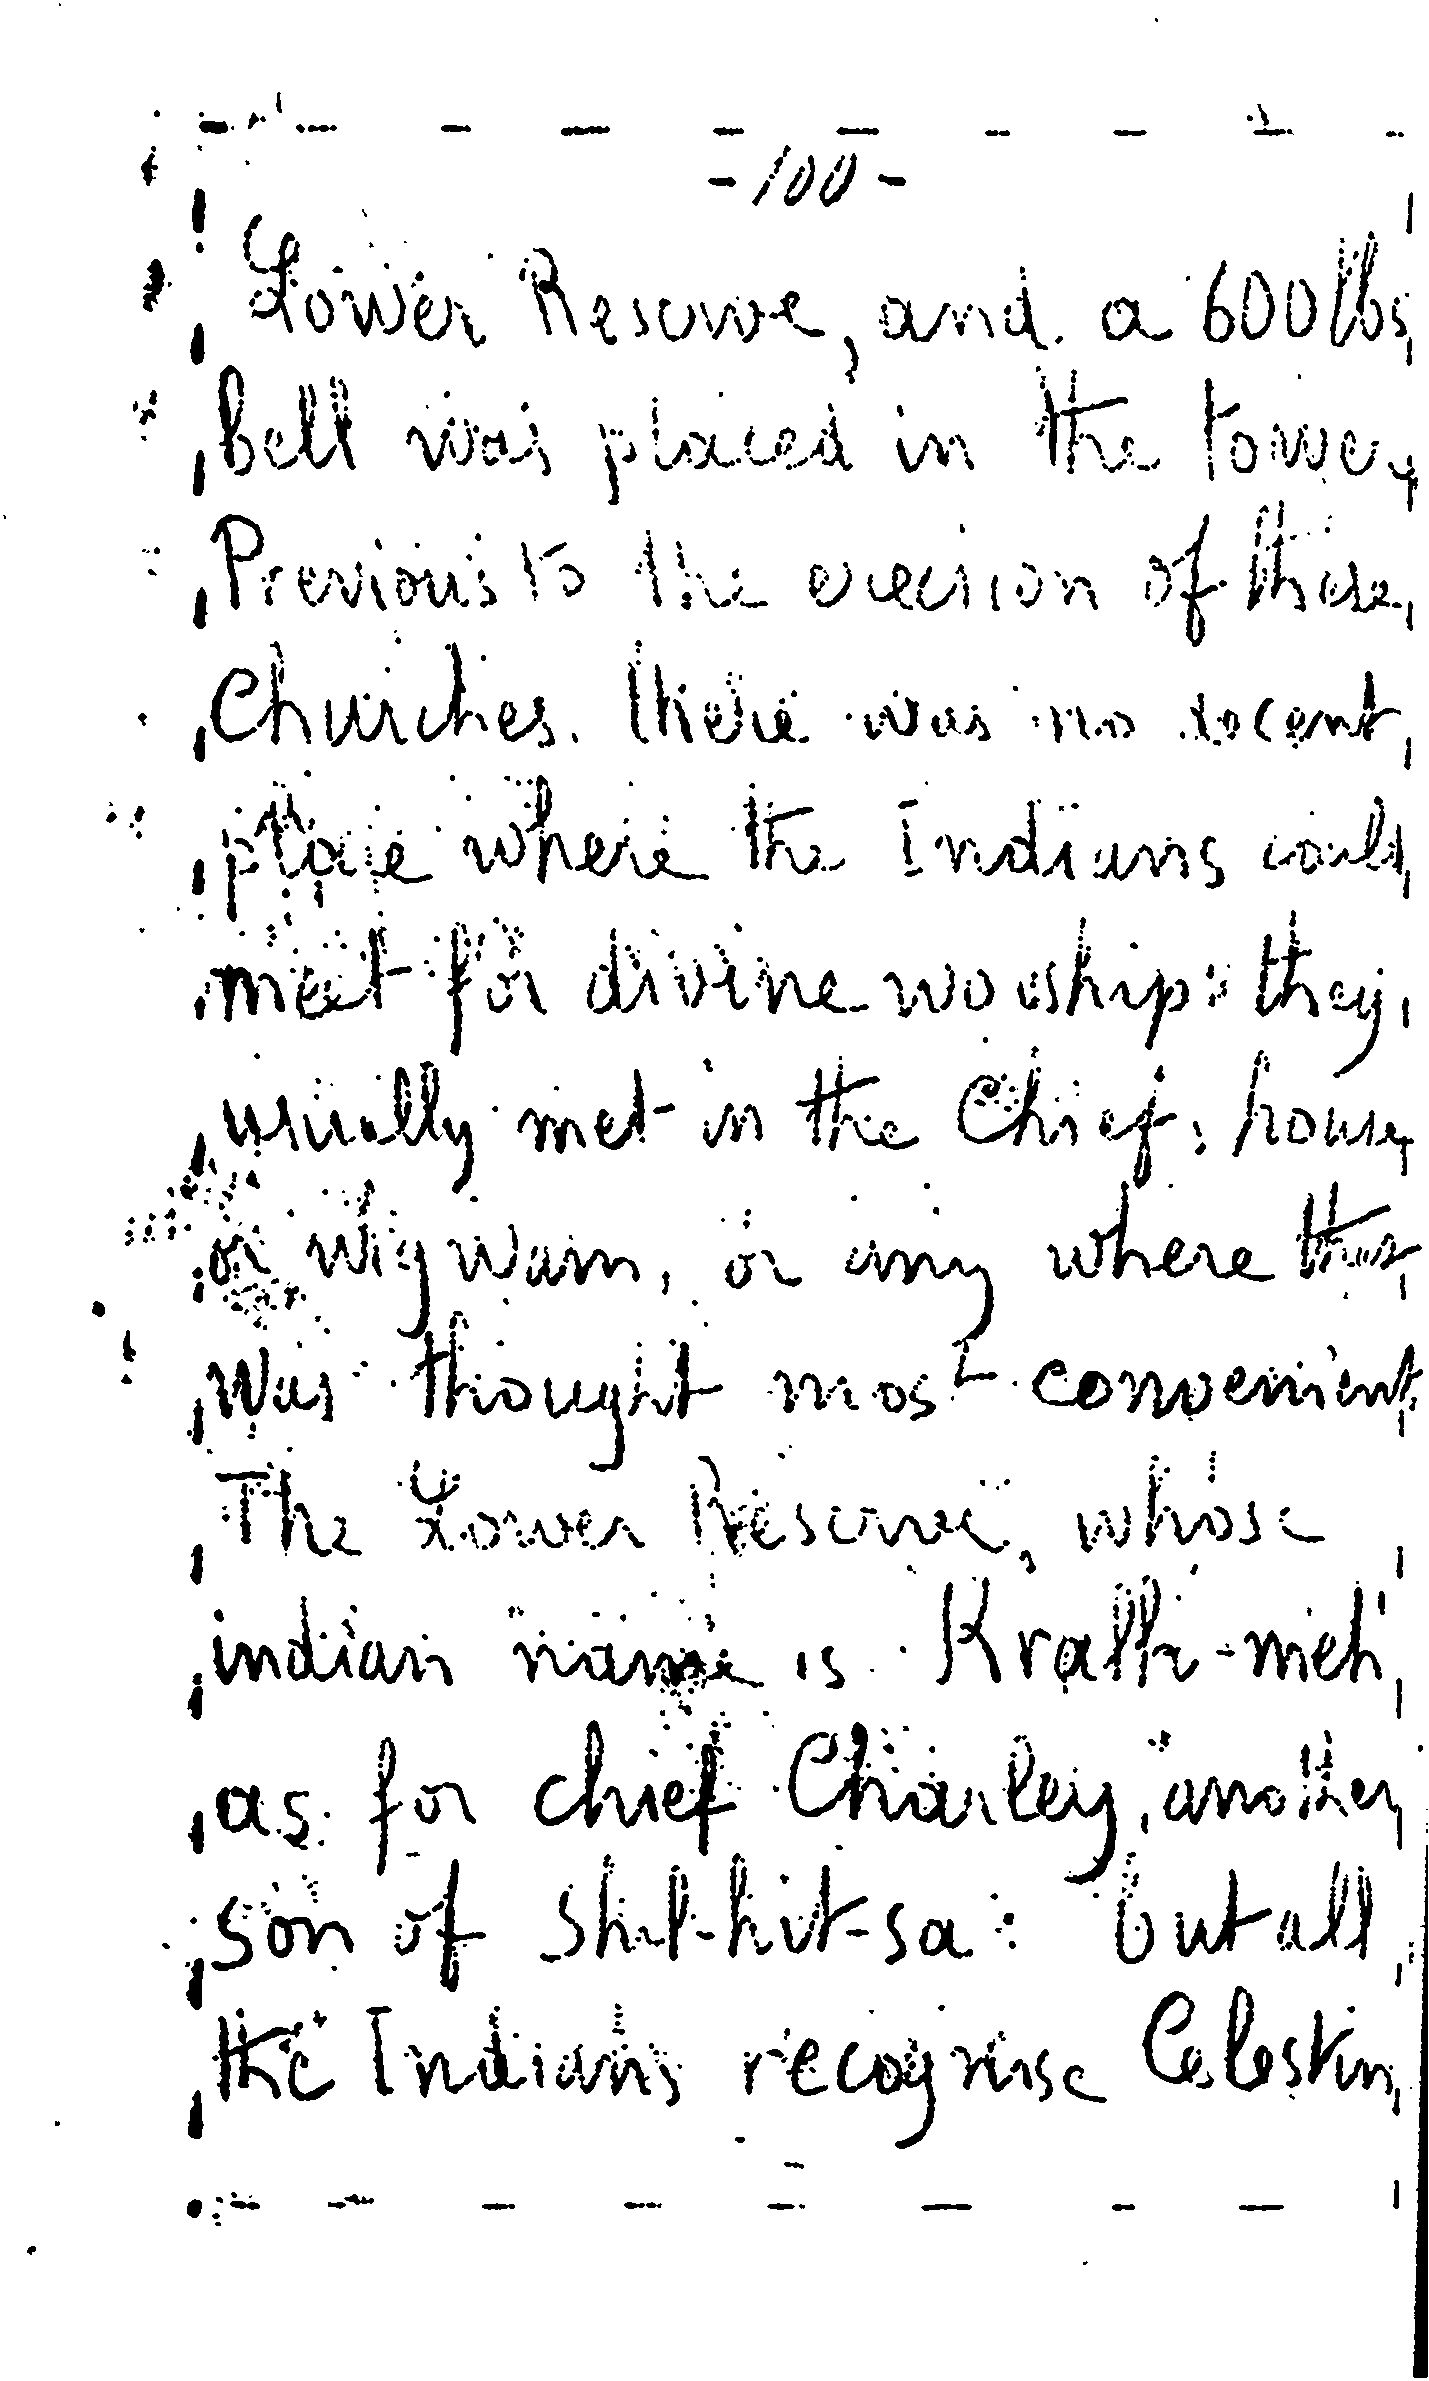 -100-
Lower Reserve, and a 600 lbs
bell was placed in the tower
Previous to the erection of these
Churches. there was no decent
place where the Indians could
meet for divine worship: they
usually met in the Chief's house
or Wigwam, or any where that
was thought most convenient
The Lower Reserve, whose
indian name is Kralk-meh
as for chief Charley, another
son of Shil-hit-sa: but all
the Indians recognise Celestin